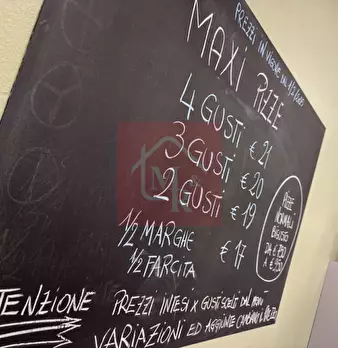 PREZZI IN VIGORE DAL
MAXI PIZZE
4 GUSTI € 21
3 GUSTI € 20
2 GUSTI € 19
1/2 MARGHE
1/2 FARCITA € 17
PIZZE
NORMALI
BIGUSTO
DA €
A €
TENZIONE PREZZI INTESI X GUSTI SCELTI DAL MENU
VARIAZIONI ED AGGIUNTE CAMBIANO IL PREZZO